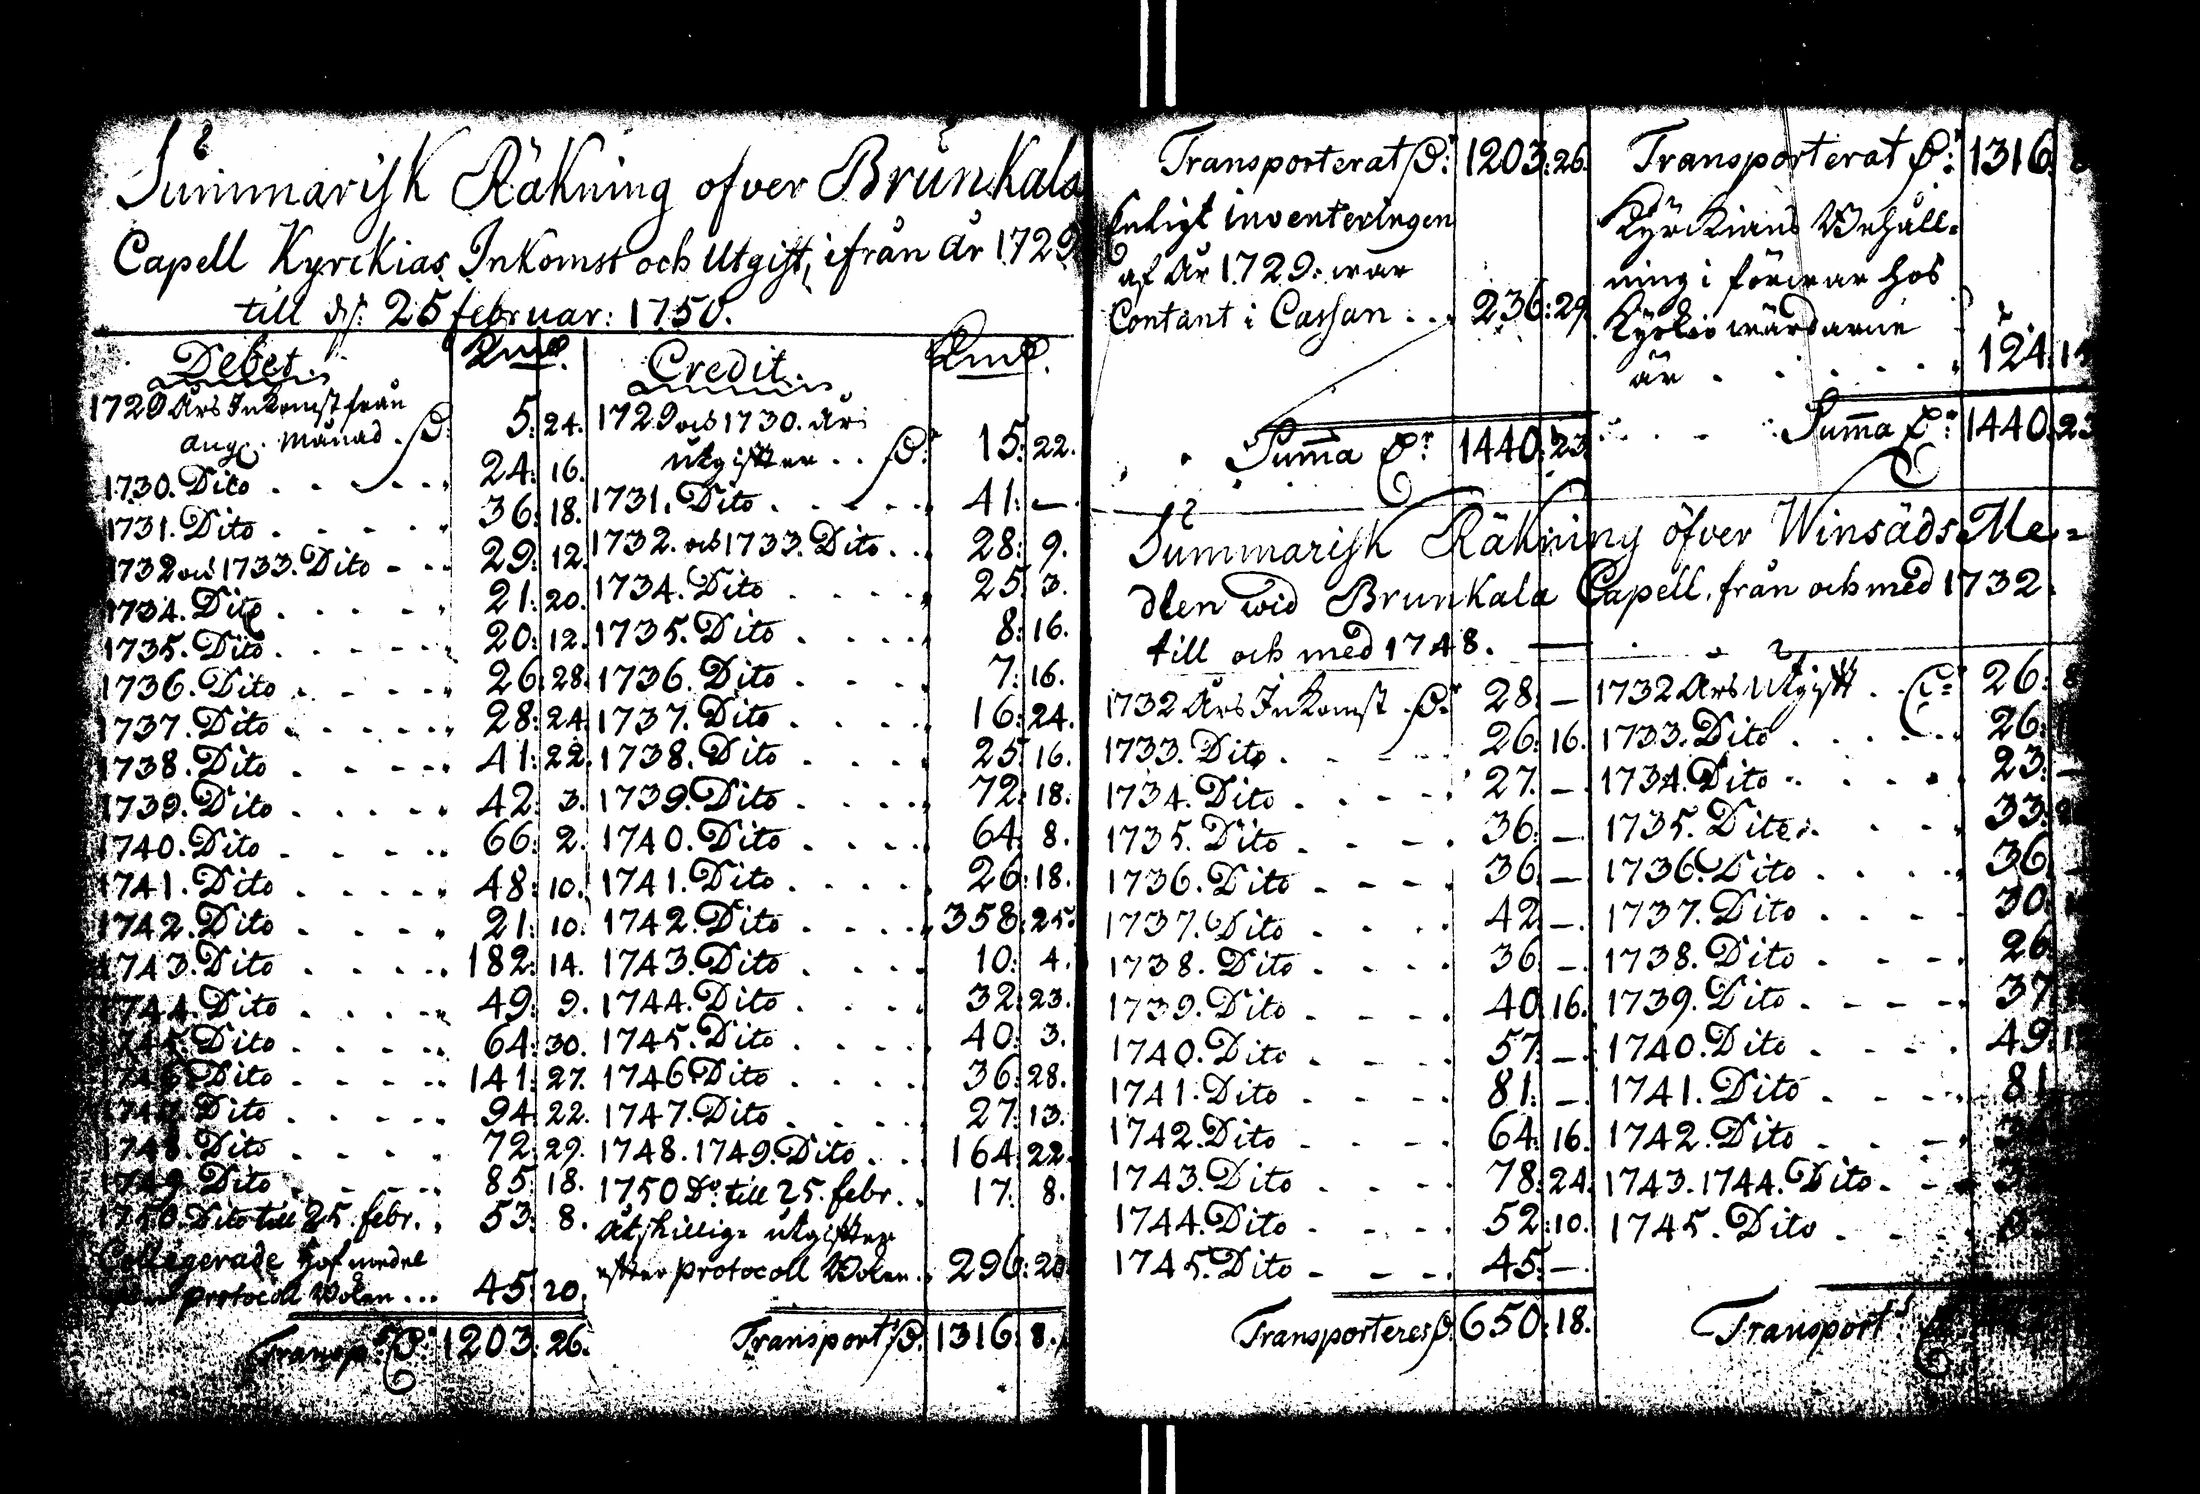 Summarisk Räkning ofver Brunkala
Capell Kyrckias Inkomst och Utgift, ifrån år 1729
till d. 25 februar: 1750.
Debet. Dmt.
1729 Års Inkomst från
aug. månad . 5: 24.
1730. Dito . . . . . 24: 16.
1731. Dito . . . . . 36: 18.
1732 och 1733. Dito . . . 29: 12.
1734. Dito . . . . . 21: 20.
1735. Dito . . . . . 20: 12.
1736. Dito . . . . . 26: 28.
1737. Dito . . . . . 28: 24.
1738. Dito . . . . . 41: 22.
1739. Dito . . . . . 42: 3.
1740. Dito . . . . . 66: 2.
1741. Dito . . . . . 48: 10.
1742. Dito . . . . . 21: 10.
1743. Dito . . . . . 182: 14.
1744. Dito . . . . . 49: 9.
1745. Dito . . . . . 64: 30.
1746. Dito . . . . . 141: 27.
1747. Dito . . . . . 94: 22.
1748. Dito . . . . . 72: 29.
1749. Dito . . . . . 85: 18.
1750. Dito till 25. febr. . 53: 8.
Collegerade Hofmedel
protocoll Boken ... 45: 20.
Transp. 1203: 26.
Credit. Dmt.
1729 och 1730. års
utgifter . . 15: 22.
1731. Dito . . . . . 41: —.
1732. och 1733. Dito . . 28: 9.
1734. Dito . . . . . 25: 3.
1735. Dito . . . . . 8: 16.
1736. Dito . . . . . 7: 16.
1737. Dito . . . . . 16: 24.
1738. Dito . . . . . 25: 16.
1739. Dito . . . . . 72: 18.
1740. Dito . . . . . 64: 8.
1741. Dito . . . . . 26: 18.
1742. Dito . . . . . 358: 25.
1743. Dito . . . . . 10: 4.
1744. Dito . . . . . 32: 23.
1745. Dito . . . . . 40: 3.
1746 Dito . . . . . 36: 28.
1747. Dito . . . . . 27: 13.
1748. 1749. Dito . . . 164: 22.
1750 Do. till 25. febr. . 17: 8.
Åtskillige utgifter
efter protocoll Boken . 296: 20
Transport. 1316: 8.
Transporterat 1203: 26.
Enligt inventeringen
af År 1729: war
Contant i Cassan . . . 236: 29.
Summa 1440: 23.
Transporterat 1316:
Kyrckians Behåll-
ning i förwar hos
Kyrkiowärdarne
är . . . . . . 124:
Summa 1440: 23
Summarisk Räkning öfver WinsädsMe-
dlen wid Brunkala Capell, från och med 1732.
till och med 1748. —
1732 Års Inkomst 28: —
1733. Dito . . . . 26: 16.
1734. Dito . . . . 27: —.
1735. Dito . . . . 36: —.
1736. Dito . . . . 36: —.
1737. Dito . . . . 42: —.
1738. Dito . . . . 36: —.
1739. Dito . . . . 40: 16.
1740. Dito . . . . 57: —.
1741. Dito . . . . 81: —.
1742. Dito . . . . 64: 16.
1743. Dito . . . . 78: 24.
1744. Dito . . . . 52: 10.
1745. Dito . . . . 45: —.
Transporteres 650: 18.
1732 Års Utgift . 26:
1733. Dito . . . . 26:
1734. Dito . . . . 23: —
1735. Dito . . . . 33:
1736. Dito . . . . 36
1737. Dito . . . . 30:
1738. Dito . . . . 26
1739. Dito . . . . 37
1740. Dito . . . . 49:
1741. Dito . . . . 81
1742. Dito . . . .
1743. 1744. Dito . . .
1745. Dito . . . .
Transport.